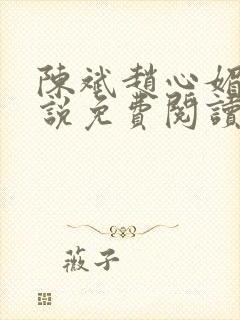 陳斌趙心媚
説免費閱讀
薇子